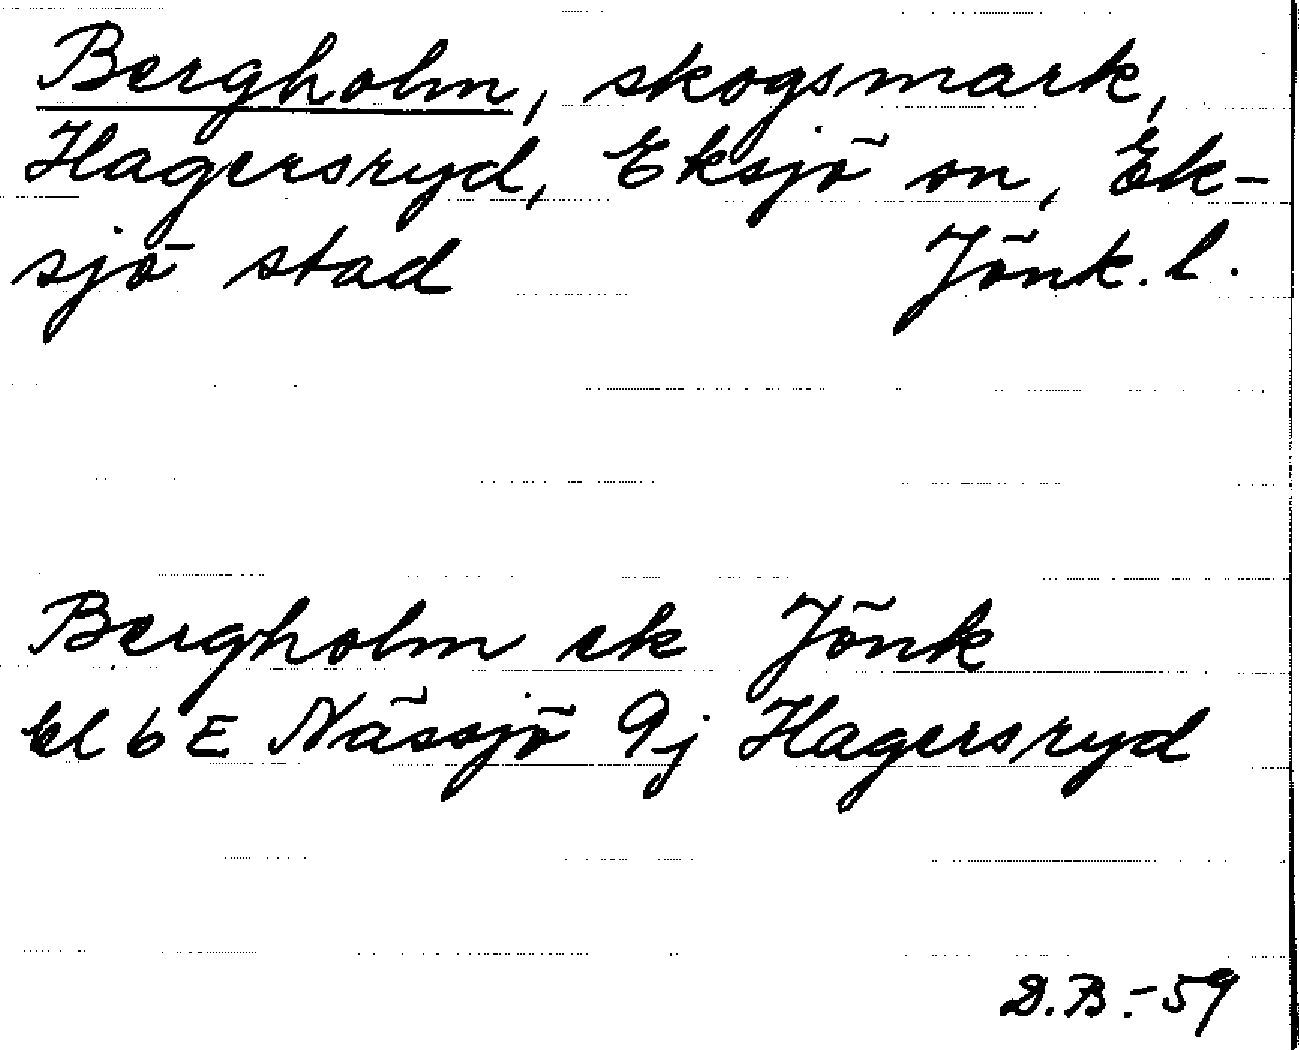 Bergholm, skogsmark,
Hagersryd, Eksjö sn, Ek-
sjö stad Jönk. l.
Bergholm ek Jönk
bl 6 E Nässjö 9j Hagersryd
D.B.-59